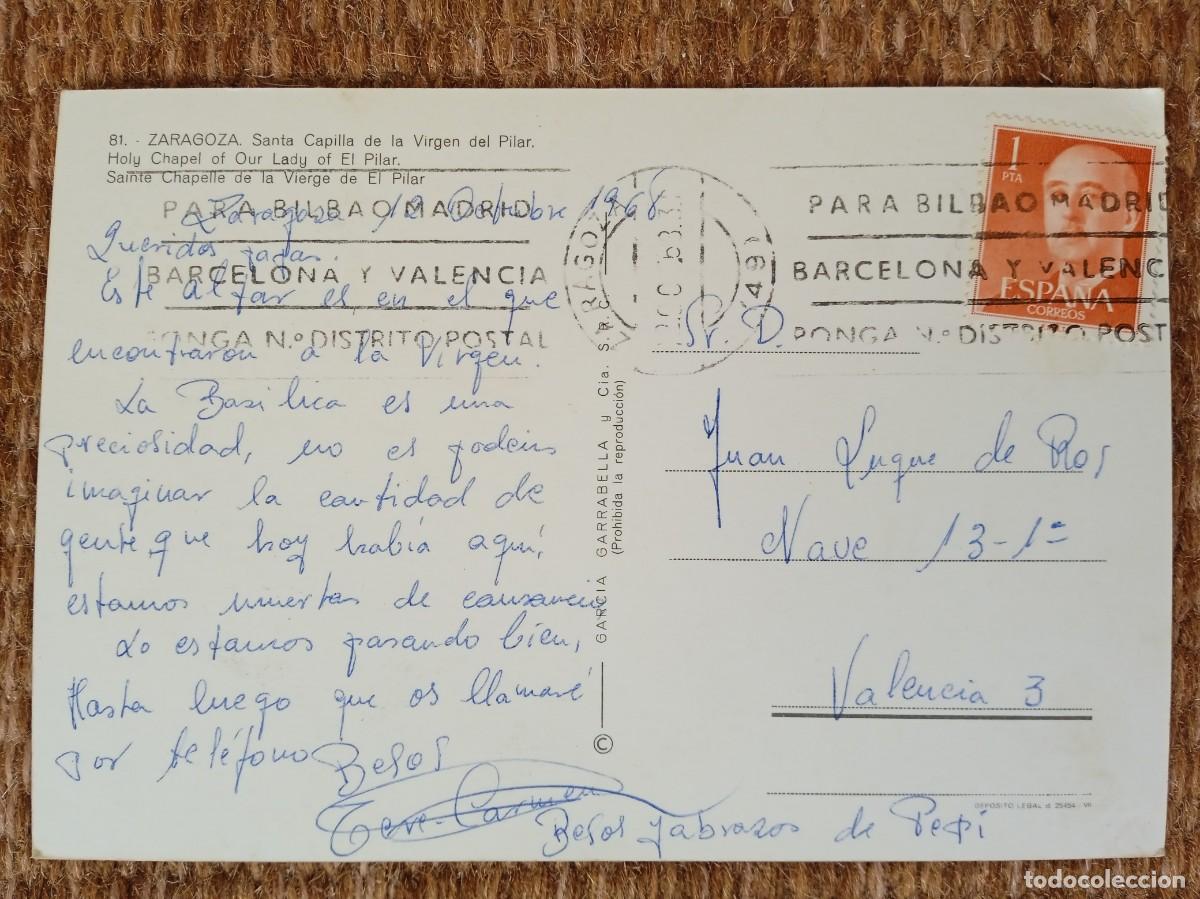 81. - ZARAGOZA. Santa Capilla de la Virgen del Pilar.
Holy Chapel of Our Lady of El Pilar.
Sainte Chapelle de la Vierge de El Pilar
Zaragoza 12 Octubre 1968
Queridos papas:
Este altar es, en el que
encontraron a la Virgen.
La Basilica es una
preciosidad, no os podeis
imaginar la cantidad de
gente que hoy había aquí,
estamos muertas de cansancio
Lo estamos pasando bien,
Hasta luego que os llamaré
por teléfono Besos
Tere-Carmen
Besos y abrazos de Pepi
PARA BILBAO MADRID
BARCELONA Y VALENCIA
PONGA N.º DISTRITO POSTAL
GARCIA GARRABELLA y Cia. S. R. C.
(Prohibida la reproducción)
©
ZARAGOZA
PARA BILBAO MADRID
BARCELONA Y VALENC
PONGA N.º DISTRITO POST
1
PTA
ESPAÑA
CORREOS
Sr. D.
Juan Luque de Ros
Nave 13-1ª
Valencia 3
DEPOSITO LEGAL B. 25454 - VII
todocoleccion